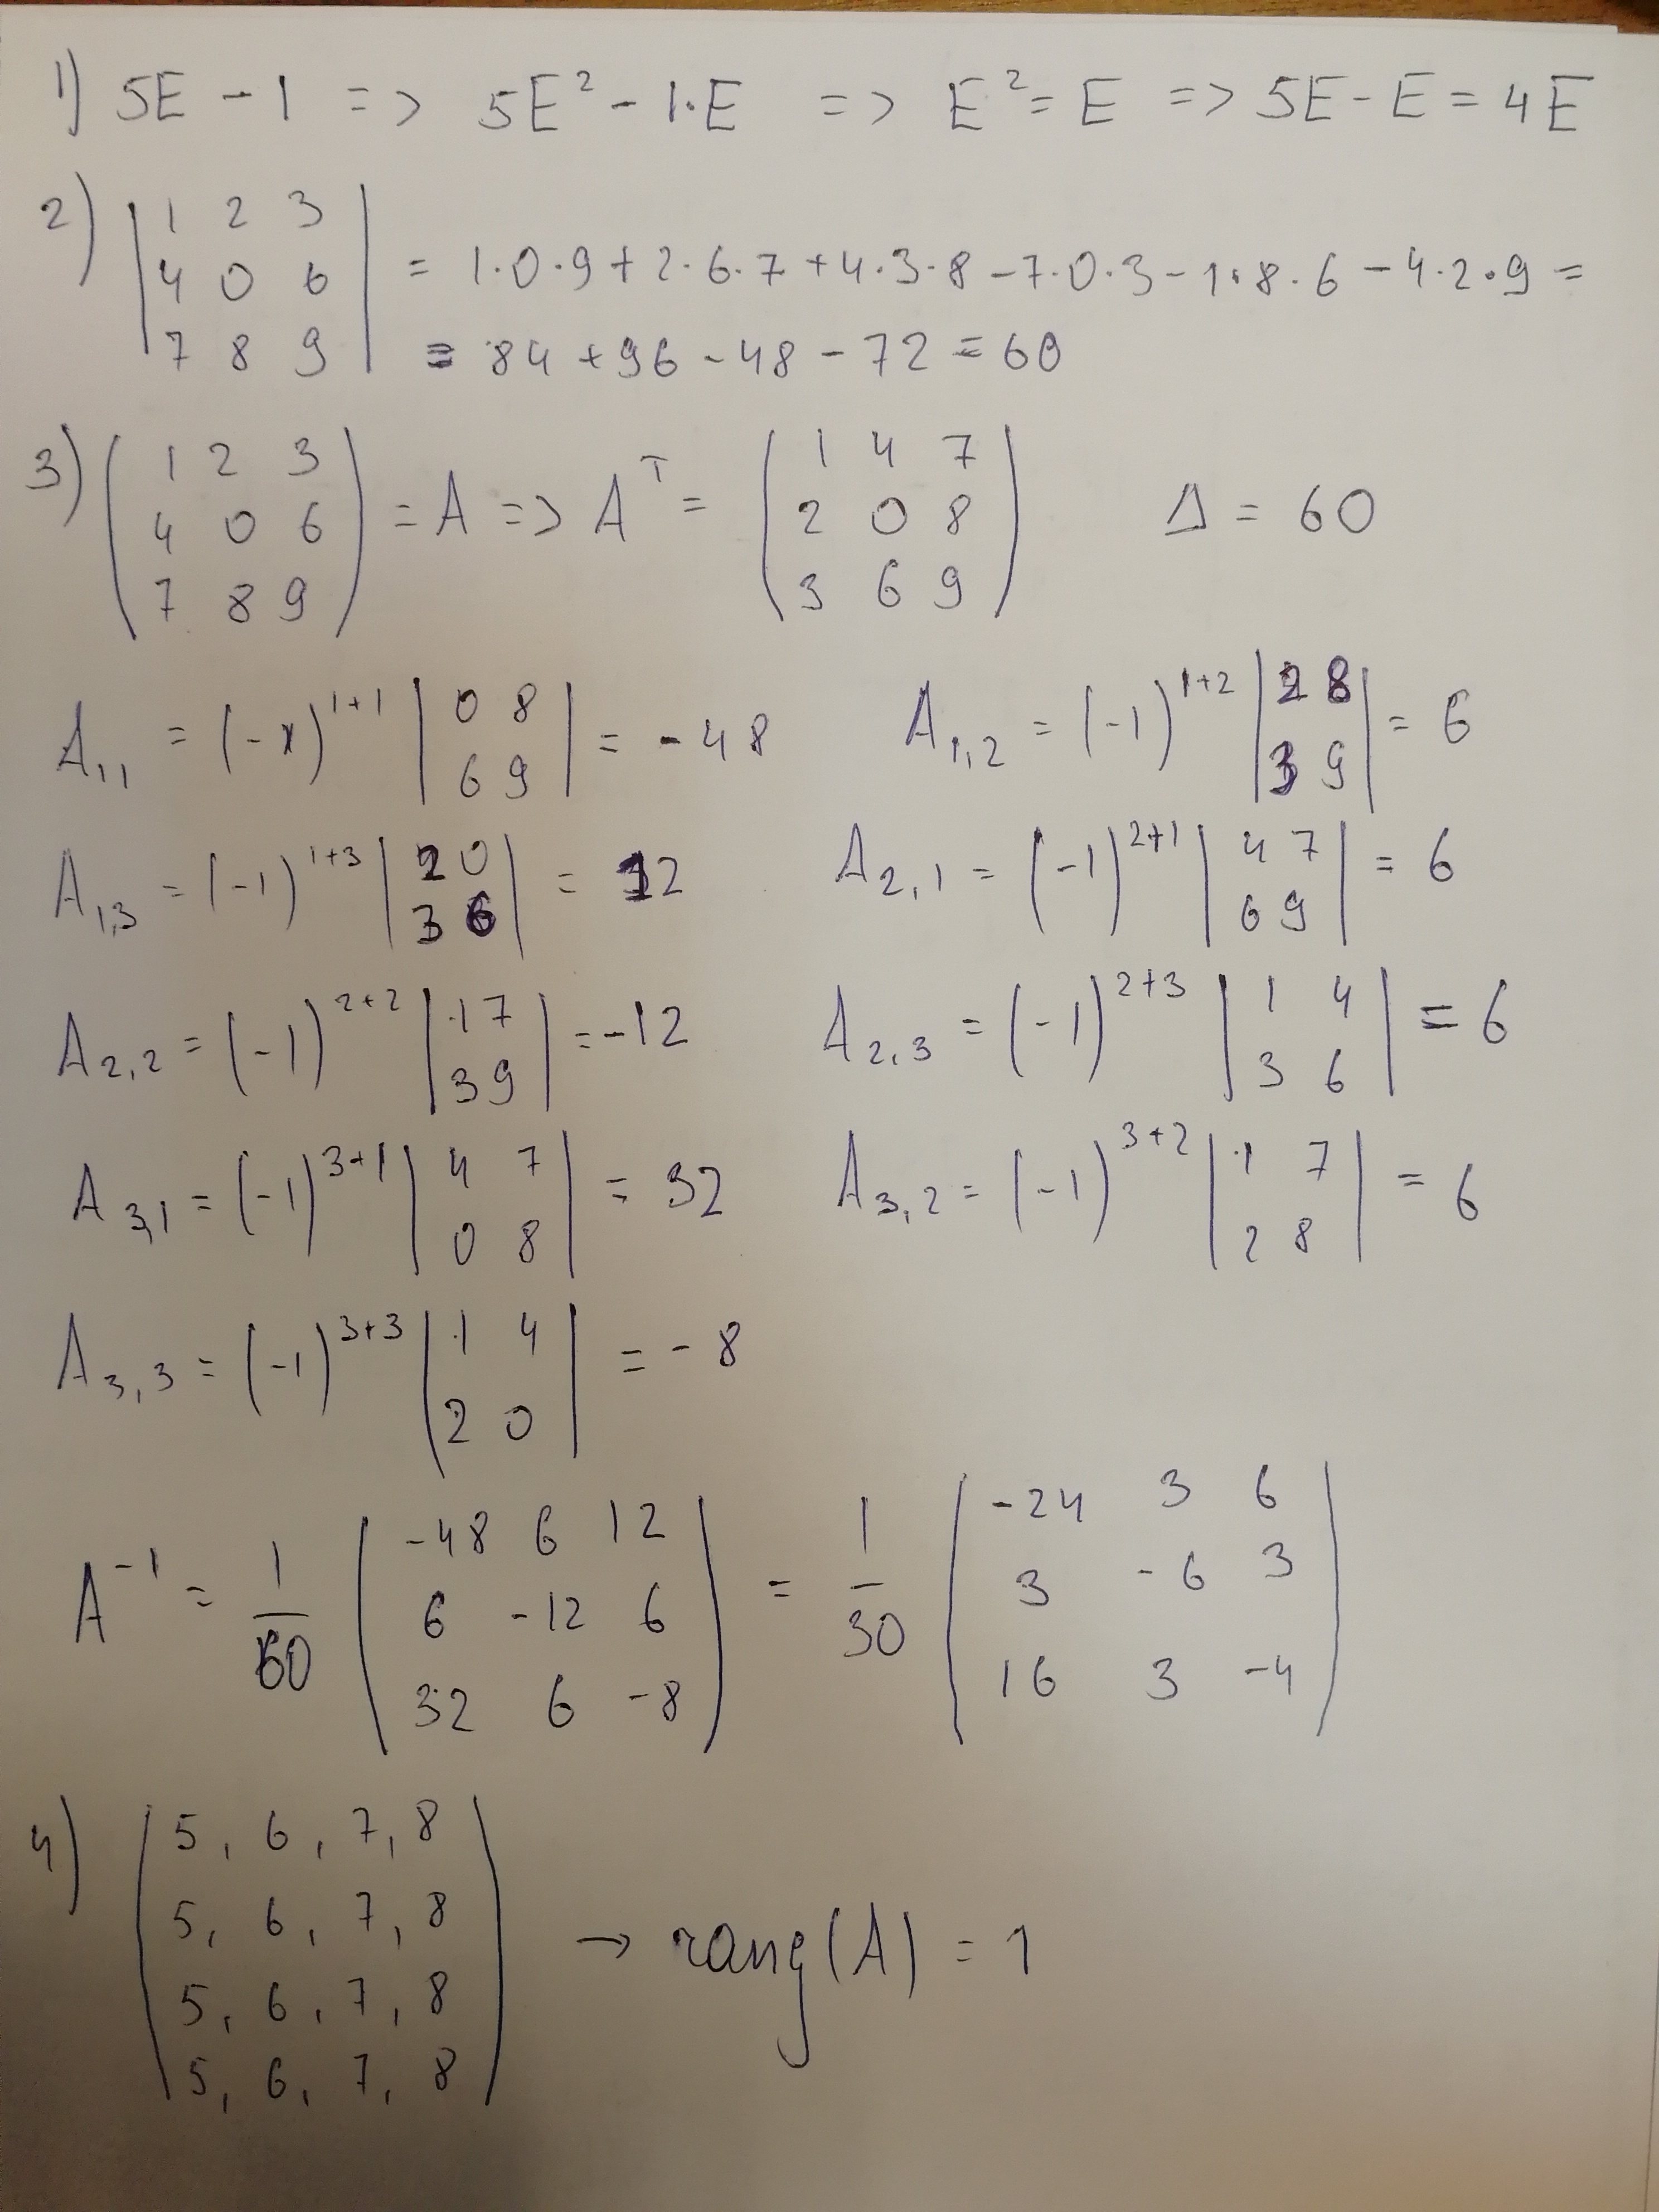 1) 5E - 1 => 5E² - 1·E => E² = E => 5E - E = 4E
2) |1 2 3
4 0 6
7 8 9| = 1·0·9 + 2·6·7 + 4·3·8 - 7·0·3 - 1·8·6 - 4·2·9 =
= 84 + 96 - 48 - 72 = 60
3) (1 2 3
4 0 6
7 8 9) = A => Aᵀ = (1 4 7
2 0 8
3 6 9) Δ = 60
A₁₁ = (-1)¹⁺¹ |0 8
6 9| = -48
A₁,₂ = (-1)¹⁺² |2 8
3 9| = 6
A₁,₃ = (-1)¹⁺³ |2 0
3 6| = 12
A₂,₁ = (-1)²⁺¹ |4 7
6 9| = 6
A₂,₂ = (-1)²⁺² |1 7
3 9| = -12
A₂,₃ = (-1)²⁺³ |1 4
3 6| = 6
A₃,₁ = (-1)³⁺¹ |4 7
0 8| = 32
A₃,₂ = (-1)³⁺² |1 7
2 8| = 6
A₃,₃ = (-1)³⁺³ |1 4
2 0| = -8
A⁻¹ = 1/60 (-48 6 12
6 -12 6
32 6 -8) = 1/30 (-24 3 6
3 -6 3
16 3 -4)
4) (5, 6, 7, 8
5, 6, 7, 8
5, 6, 7, 8
5, 6, 7, 8) → rang(A) = 1